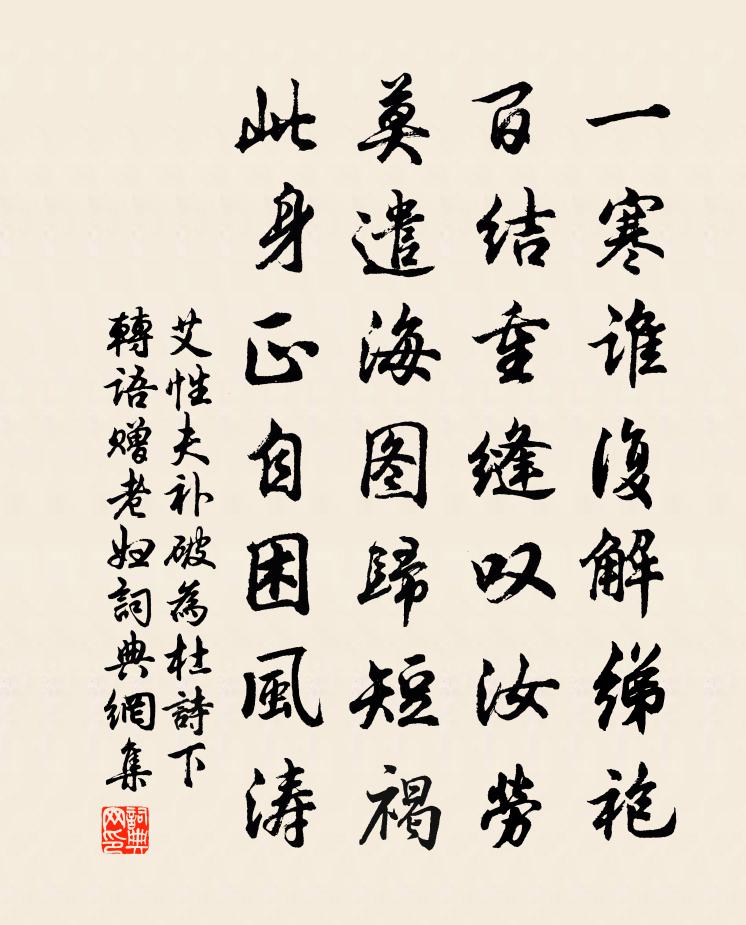 一寒谁復解绨袍
百结重缝叹汝勞
莫遣海图歸短褐
此身正自困風涛
艾性夫补破為杜詩下
轉语赠老妇詞典網集
詞典
网印